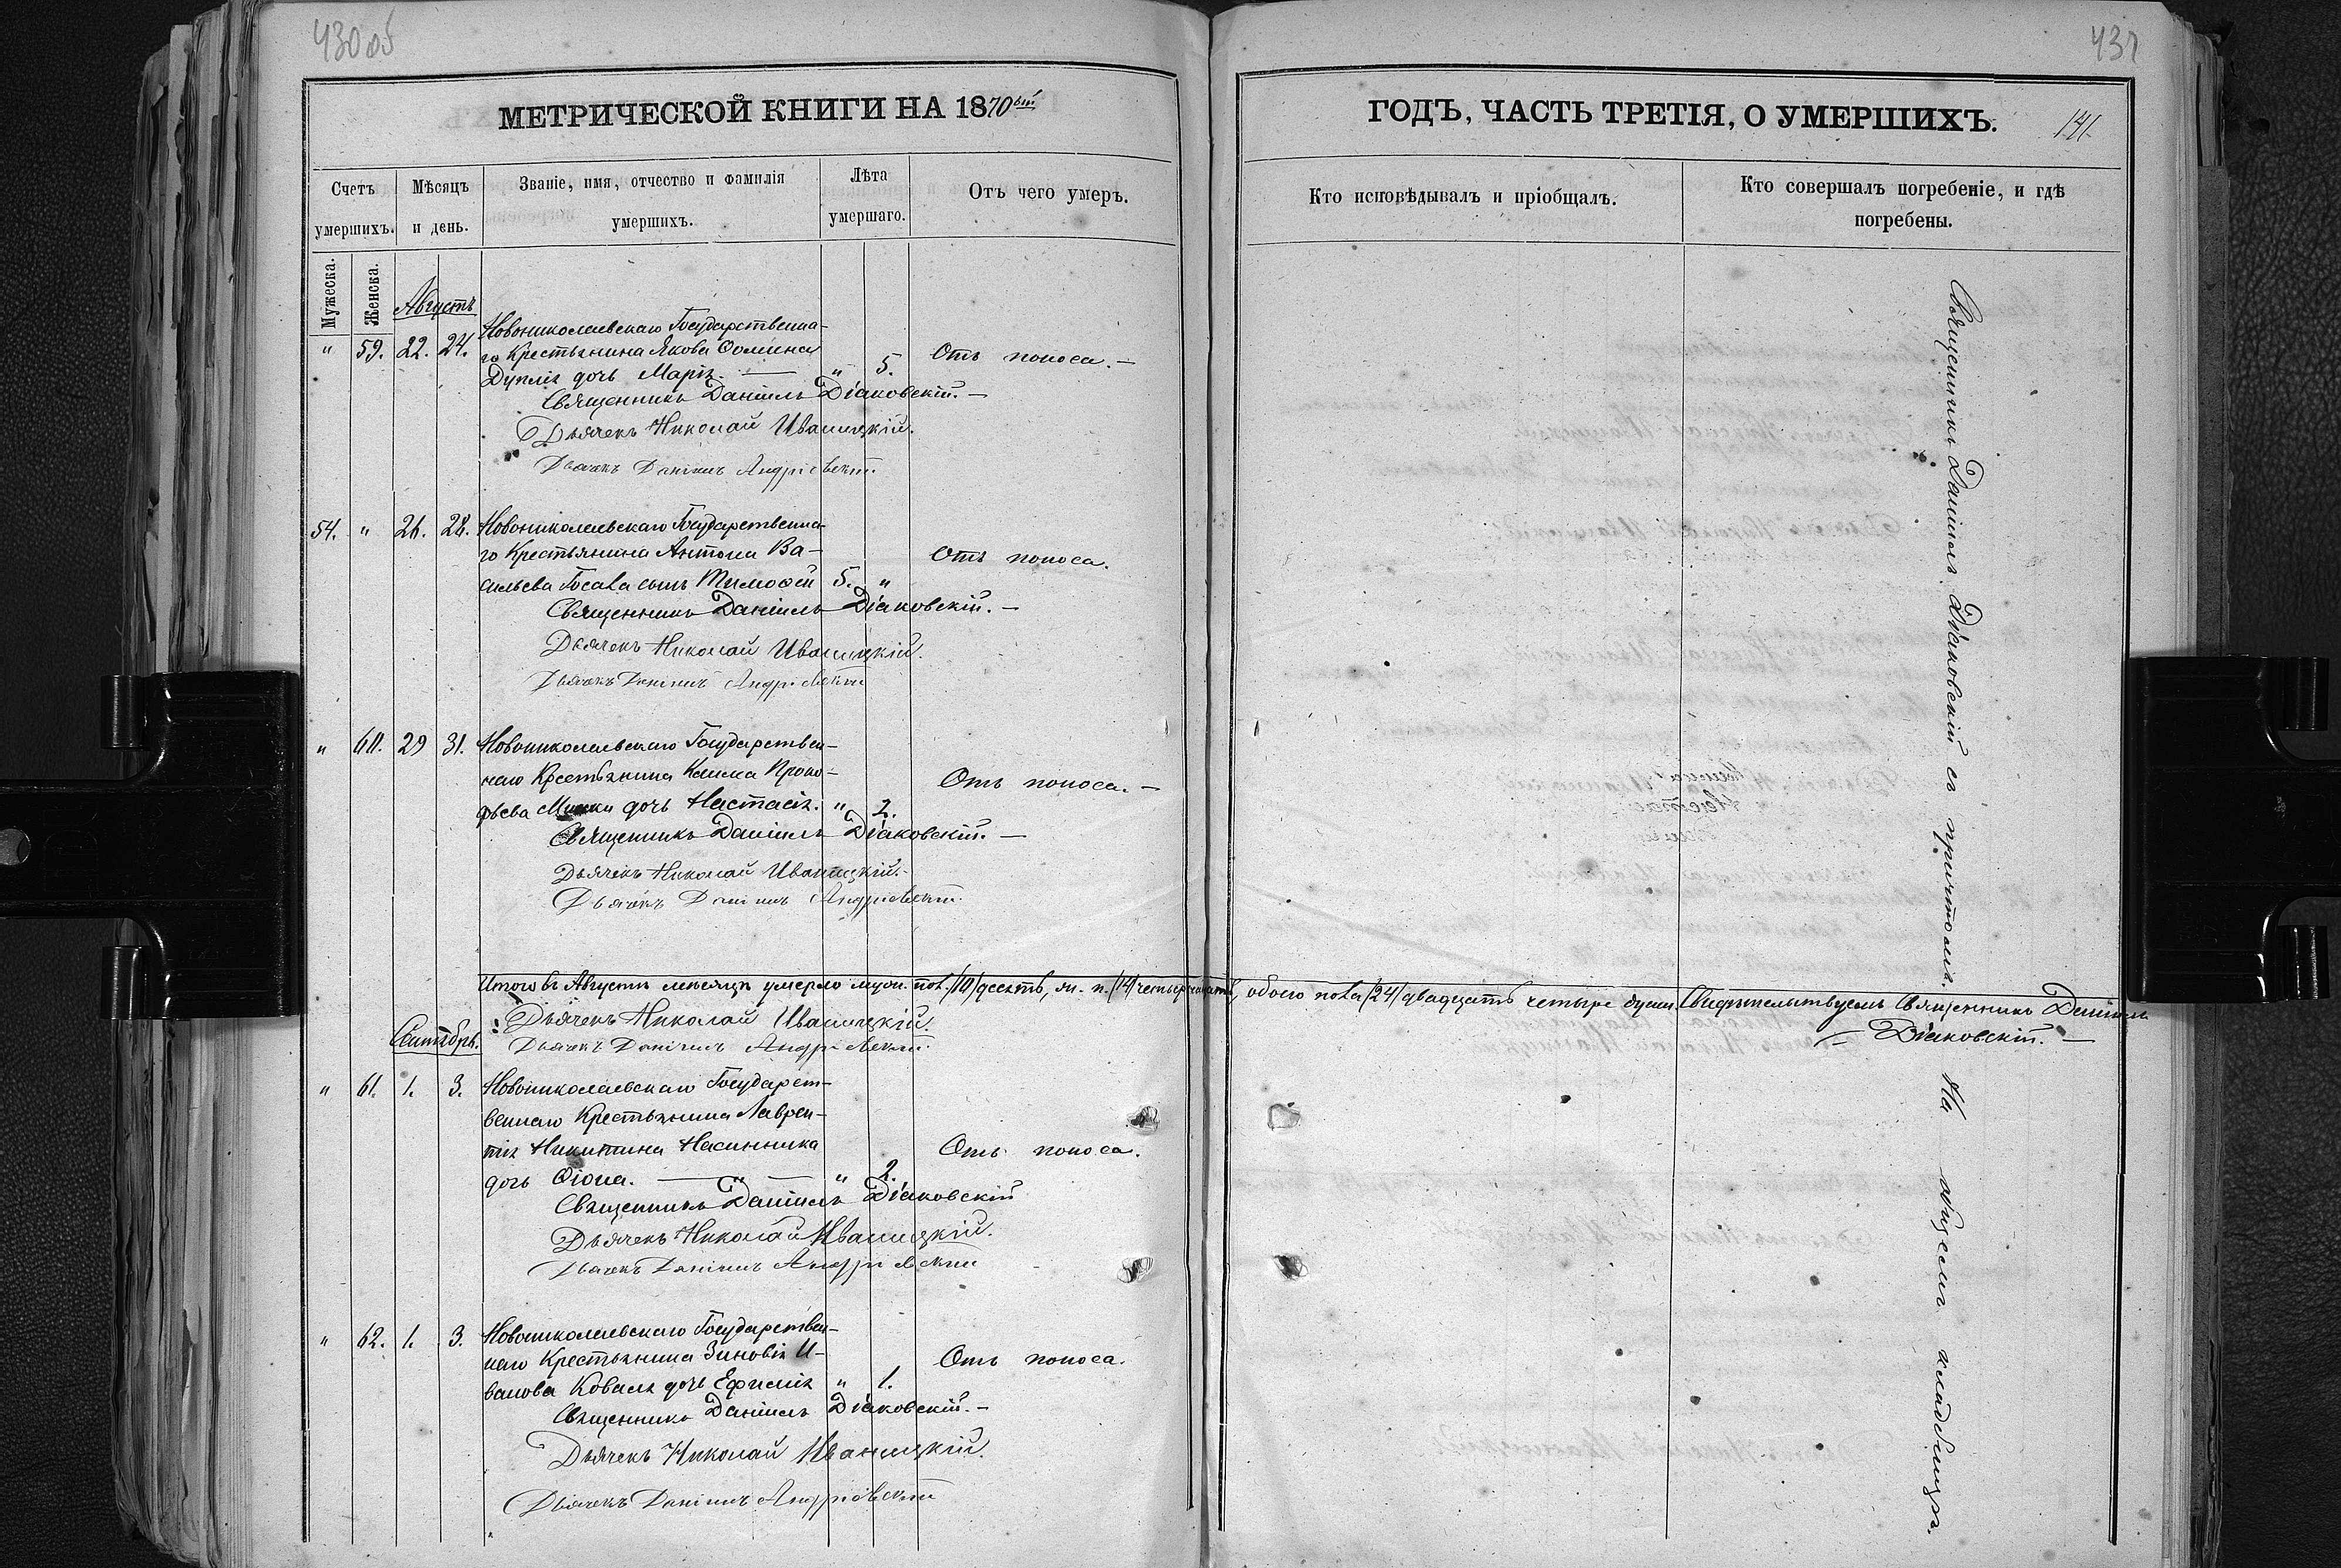 430об
МЕТРИЧЕСКОЙ КНИГИ НА 1870ый
Счетъ умершихъ.
Мѣсяцъ и день.
Званіе, имя, отчество и фамилія умершихъ.
Лѣта умершаго.
Отъ чего умеръ.
Мужеска.
Женска.
Августъ
Новониколаевскаго Государственна-
" 59. 22. 24. го Крестьянина Якова Ѳомина Отъ поноса.—
дочь Марія. — " 5.
Священникъ Даніилъ Діаковскій.—
Дьячекъ Николай Иваницкій.
Дьячекъ Даніилъ Андріевскій.
54. " 26. 28. Новониколаевскаго Государственна-
го Крестьянина Антона Ва- Отъ поноса.
сильева Госала сынъ Тимоѳей 5. "
Священникъ Даніилъ Діаковскій.—
Дьячекъ Николай Иваницкій.
Дьячекъ Даніилъ Андріевскій
" 60. 29 31. Новониколаевскаго Государствен-
наго Крестьянина Клима Проко- Отъ поноса.—
фьева дочь Настасія. " 2.
Священникъ Даніилъ Діаковскій.—
Дьячекъ Николай Иваницкій.
Дьячекъ Даніилъ Андріевскій.
Итого въ Августѣ мѣсяцѣ умерло муж. пол. /10/ десять, ж. п. /14/ четырнадцать, обоего пола /24/ двадцать четыре души. Свидѣтельствуемъ Священникъ Даніилъ
Діаковскій.—
Дьячекъ Николай Иваницкій.
Сентябрь.
Дьячекъ Даніилъ Андріевскій.
" 61. 1. 3. Новониколаевскаго Государст-
веннаго Крестьянина Лаврен-
тія Никитина Насинника Отъ поноса.
дочь Ѳіона. — " 2.
Священникъ Даніилъ Діаковскій
Дьячекъ Николай Иваницкій.
Дьячекъ Даніилъ Андріевскій
" 62. 1. 3. Новониколаевскаго Государствен-
наго Крестьянина Зиновія И- Отъ поноса.
ванова Коваля дочь Ефимія " 1.
Священникъ Даніилъ Діаковскій.—
Дьячекъ Николай Иваницкій.
Дьячекъ Даніилъ Андріевскій
431
ГОДЪ, ЧАСТЬ ТРЕТІЯ, О УМЕРШИХЪ.
141.
Кто исповѣдывалъ и пріобщалъ.
Кто совершалъ погребеніе, и гдѣ погребены.
Священникъ Даніилъ Діаковскій съ причтомъ. На общемъ кладбищѣ.